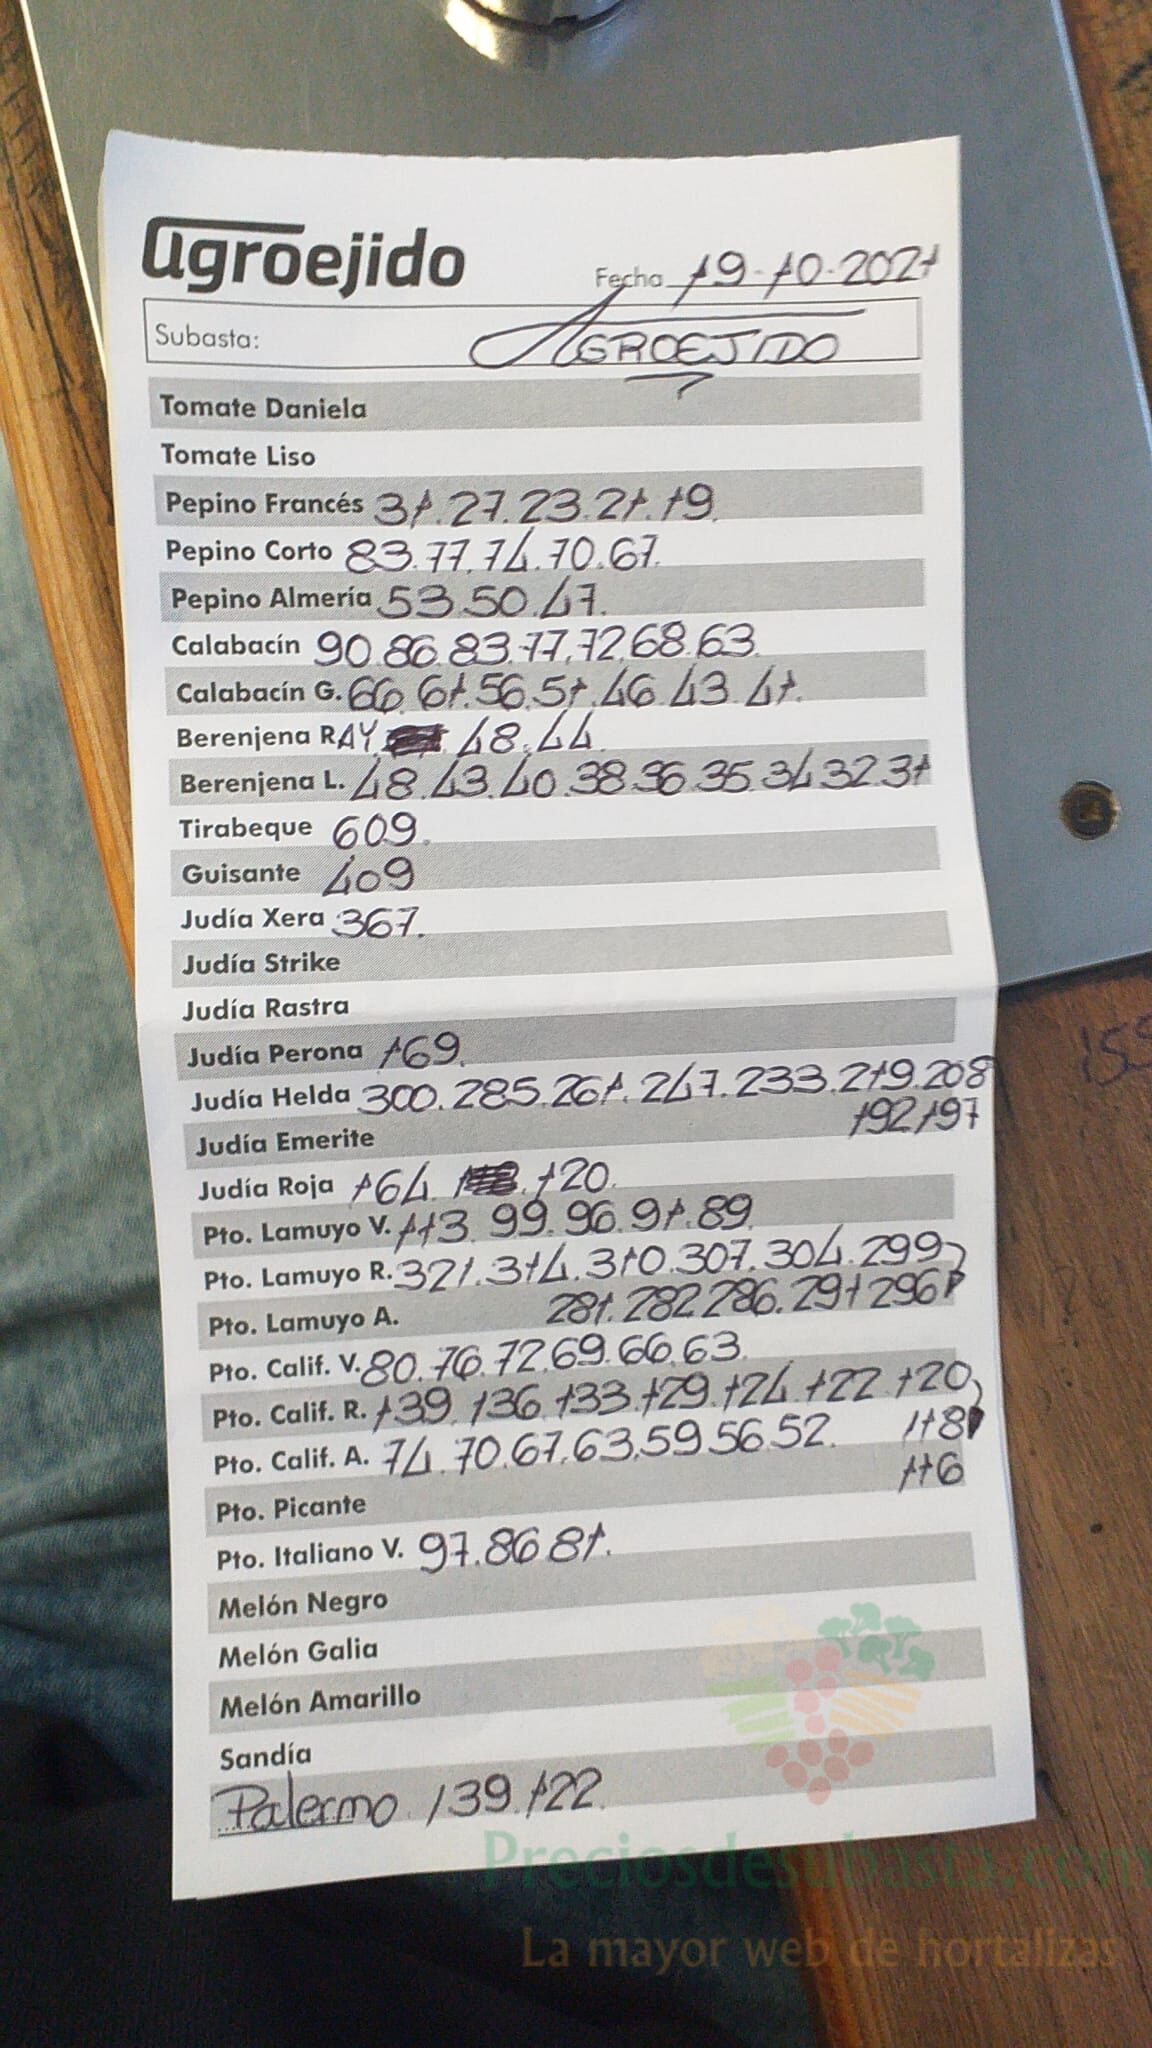 agroejido
Fecha 19-10-2021
Subasta: AGROEJIDO
Tomate Daniela
Tomate Liso
Pepino Francés 31.27.23.21.19.
Pepino Corto 83.77.74.70.67.
Pepino Almería 53.50.47.
Calabacín 90.86.83.77.72.68.63.
Calabacín G. 66.61.56.51.46.43.41.
Berenjena RAY. 48.44.
Berenjena L. 48.43.40.38.36.35.34.32.31
Tirabeque 609.
Guisante 409
Judía Xera 367.
Judía Strike
Judía Rastra
Judía Perona 169.
Judía Helda 300.285.261.247.233.219.208
192 197
Judía Emerite
Judía Roja 164. 120.
Pto. Lamuyo V. 113.99.96.91.89.
Pto. Lamuyo R. 321.314.310.307.304.299
Pto. Lamuyo A. 281.282 286.291 296
Pto. Calif. V. 80.76.72.69.66.63.
Pto. Calif. R. 139.136.133.129.124.122.120
118
Pto. Calif. A. 74.70.67.63.59.56.52.
116
Pto. Picante
Pto. Italiano V. 97.86 81.
Melón Negro
Melón Galia
Melón Amarillo
Sandía
Palermo 139.122.
Preciosdesubasta.com
La mayor web de hortalizas